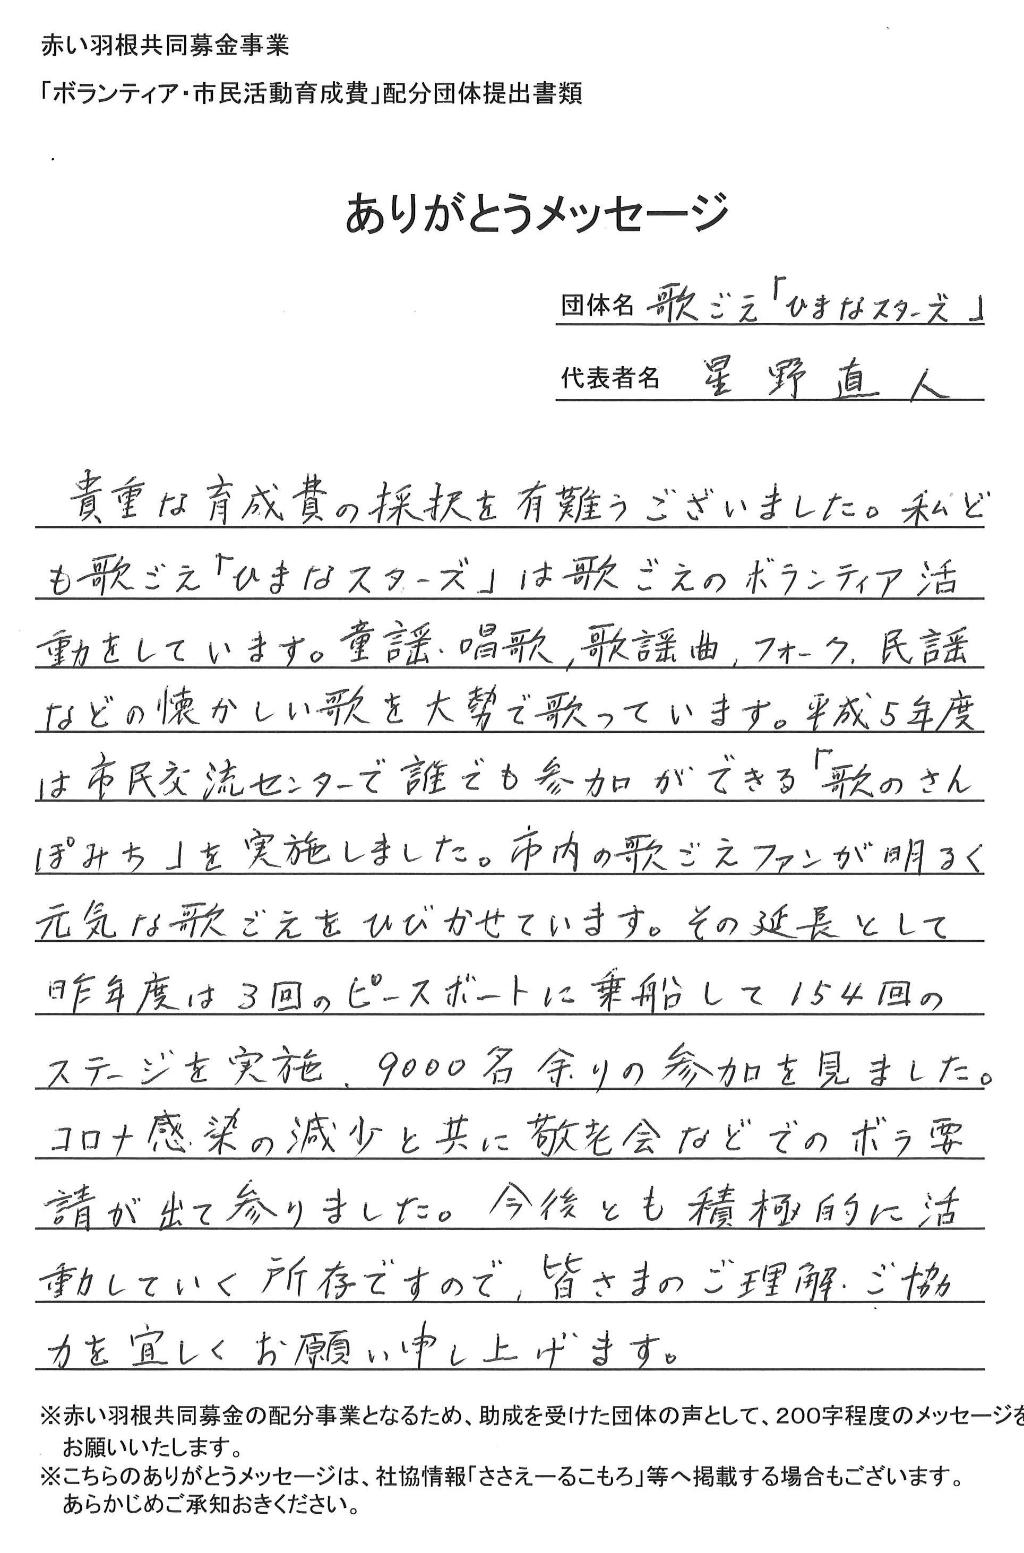 赤い羽根共同募金事業
「ボランティア・市民活動育成費」配分団体提出書類
ありがとうメッセージ
団体名 歌ごえ「ひまなスターズ」
代表者名 星野直人
貴重な育成費の採択を有難うございました。私ど
も歌ごえ「ひまなスターズ」は歌ごえのボランティア活
動をしています。童謡・唱歌,歌謡曲,フォーク,民謡
などの懐かしい歌を大勢で歌っています。平成5年度
は市民交流センターで誰でも参加ができる「歌のさん
ぽみち」を実施しました。市内の歌ごえファンが明るく
元気な歌ごえをひびかせています。その延長として
昨年度は3回のピースボートに乗船して154回の
ステージを実施、9000名余りの参加を見ました。
コロナ感染の減少と共に敬老会などでのボラ要
請が出て参りました。今後とも積極的に活
動していく所存ですので,皆さまのご理解・ご協
力を宜しくお願い申し上げます。
※赤い羽根共同募金の配分事業となるため、助成を受けた団体の声として、200字程度のメッセージを
お願いいたします。
※こちらのありがとうメッセージは、社協情報「ささえーるこもろ」等へ掲載する場合もございます。
あらかじめご承知おきください。